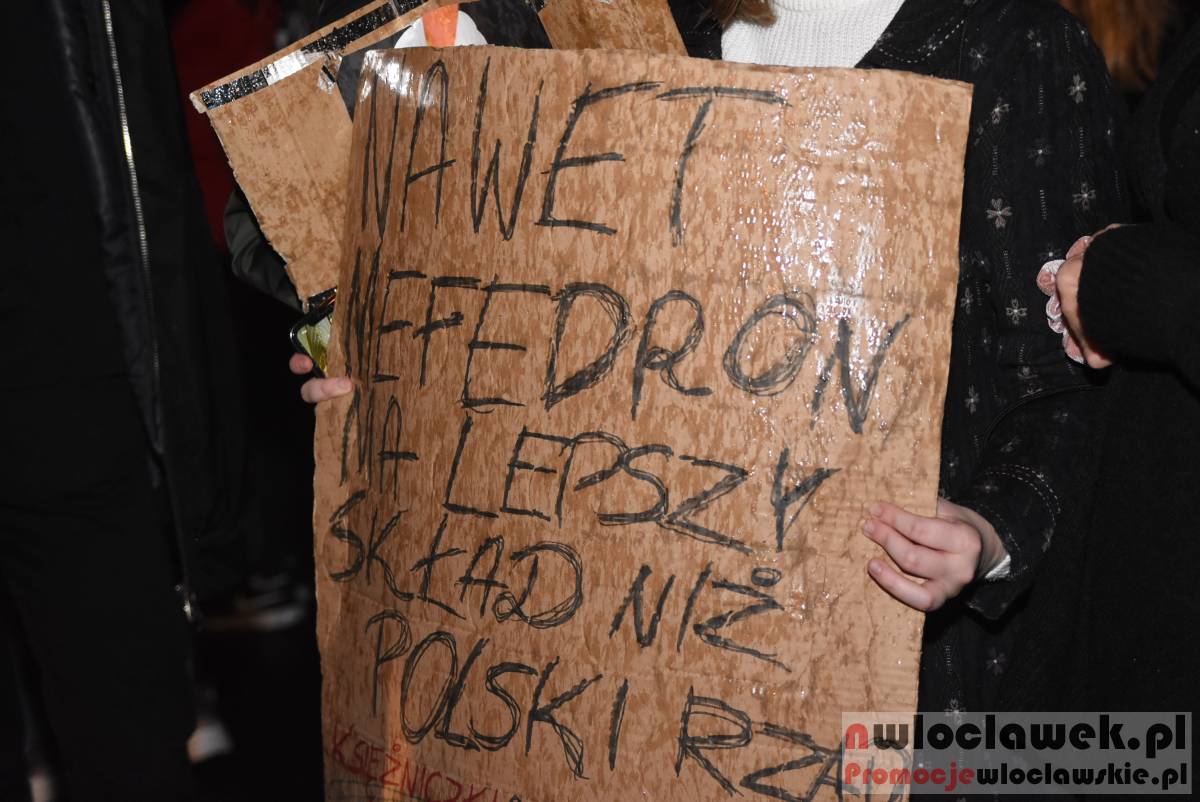 NAWET
MEFEDRON
MA LEPSZY
SKŁAD NIŻ
POLSKI RZĄD
KSIĘŻNICZKI
nwloclawek.pl
Promocjewloclawskie.pl